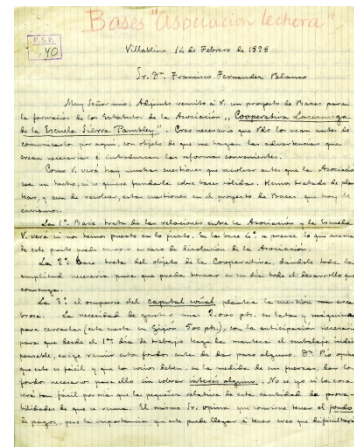 Bases "Asociacion lechera"
F.S.P.
40
Villablino 14 de Febrero de 1898
Sr. Dn. Francisco Fernandez Blanco
Muy Señor mio: Adjunto remito á V. un proyecto de Bases para
la formacion de los Estatutos de la Asociacion, "Cooperativa Lacianiega
de la Escuela Sierra Pambley". Creo necesario que Vds lo vean antes de
comunicarlo por aqui, con objeto de que me hagan las advertencias que
crean necesarias é introduzcan las reformas convenientes.
Como V. verá hay muchas cuestiones que resolver antes que la Asociacion
sea un hecho, si se quiere fundarla sobre bases sólidas. Hemos tratado de plan
tear, y aun de resolver, estas cuestiones en el proyecto de Bases que hoy le
enviamos.
La 1ª Base trata de las relaciones entre la Asociacion y la Escuela
V. verá si nos hemos puesto en lo justo. En la base 6ª se provee lo que acerca
de este punto puede ocurrir en caso de disolucion de la Asociacion.
La 2ª Base trata del objeto de la Cooperativa, dándole toda la
amplitud necesaria para que pueda tomar en su dia todo el desarrollo que
convenga.
La 3ª al ocuparse del capital social plantea la cuestion mas esca
brosa. La necesidad de gastar unas 2.000 pts. en latas y máquina
para cerrarlas (esta cuesta en Gijon 500 pts), con la anticipacion necesaria
para que desde el 1er dia de trabajo tenga la manteca el embalaje indis
pensable, exige reunir este fondo antes de dar paso alguno. Dn Pío opina
que esto es fácil y que los socios deben, en la medida de sus fuerzas, dar los
fondos necesarios para ello sin cobrar interés alguno. No sé yo si la cosa
será tan fácil por mas que la pequeñez relativa de esta cantidad da proba
bilidades de que se reuna. El mismo Sr. opina que conviene tener el fondo
de pagos, pero la importancia que este puede llegar á tener creo que dificultará